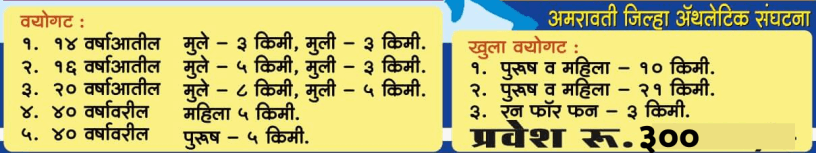 वयोगट :
१. १४ वर्षाआतील मुले – ३ किमी, मुली – ३ किमी.
२. १६ वर्षाआतील मुले – ५ किमी, मुली – ३ किमी.
३. २० वर्षाआतील मुले – ८ किमी, मुली – ५ किमी.
४. ४० वर्षावरील महिला ५ किमी.
५. ४० वर्षावरील पुरूष – ५ किमी.
अमरावती जिल्हा ॲथलेटिक संघटना
खुला वयोगट :
१. पुरूष व महिला – १० किमी.
२. पुरूष व महिला – २१ किमी.
३. रन फॉर फन – ३ किमी.
प्रवेश रू. ३००